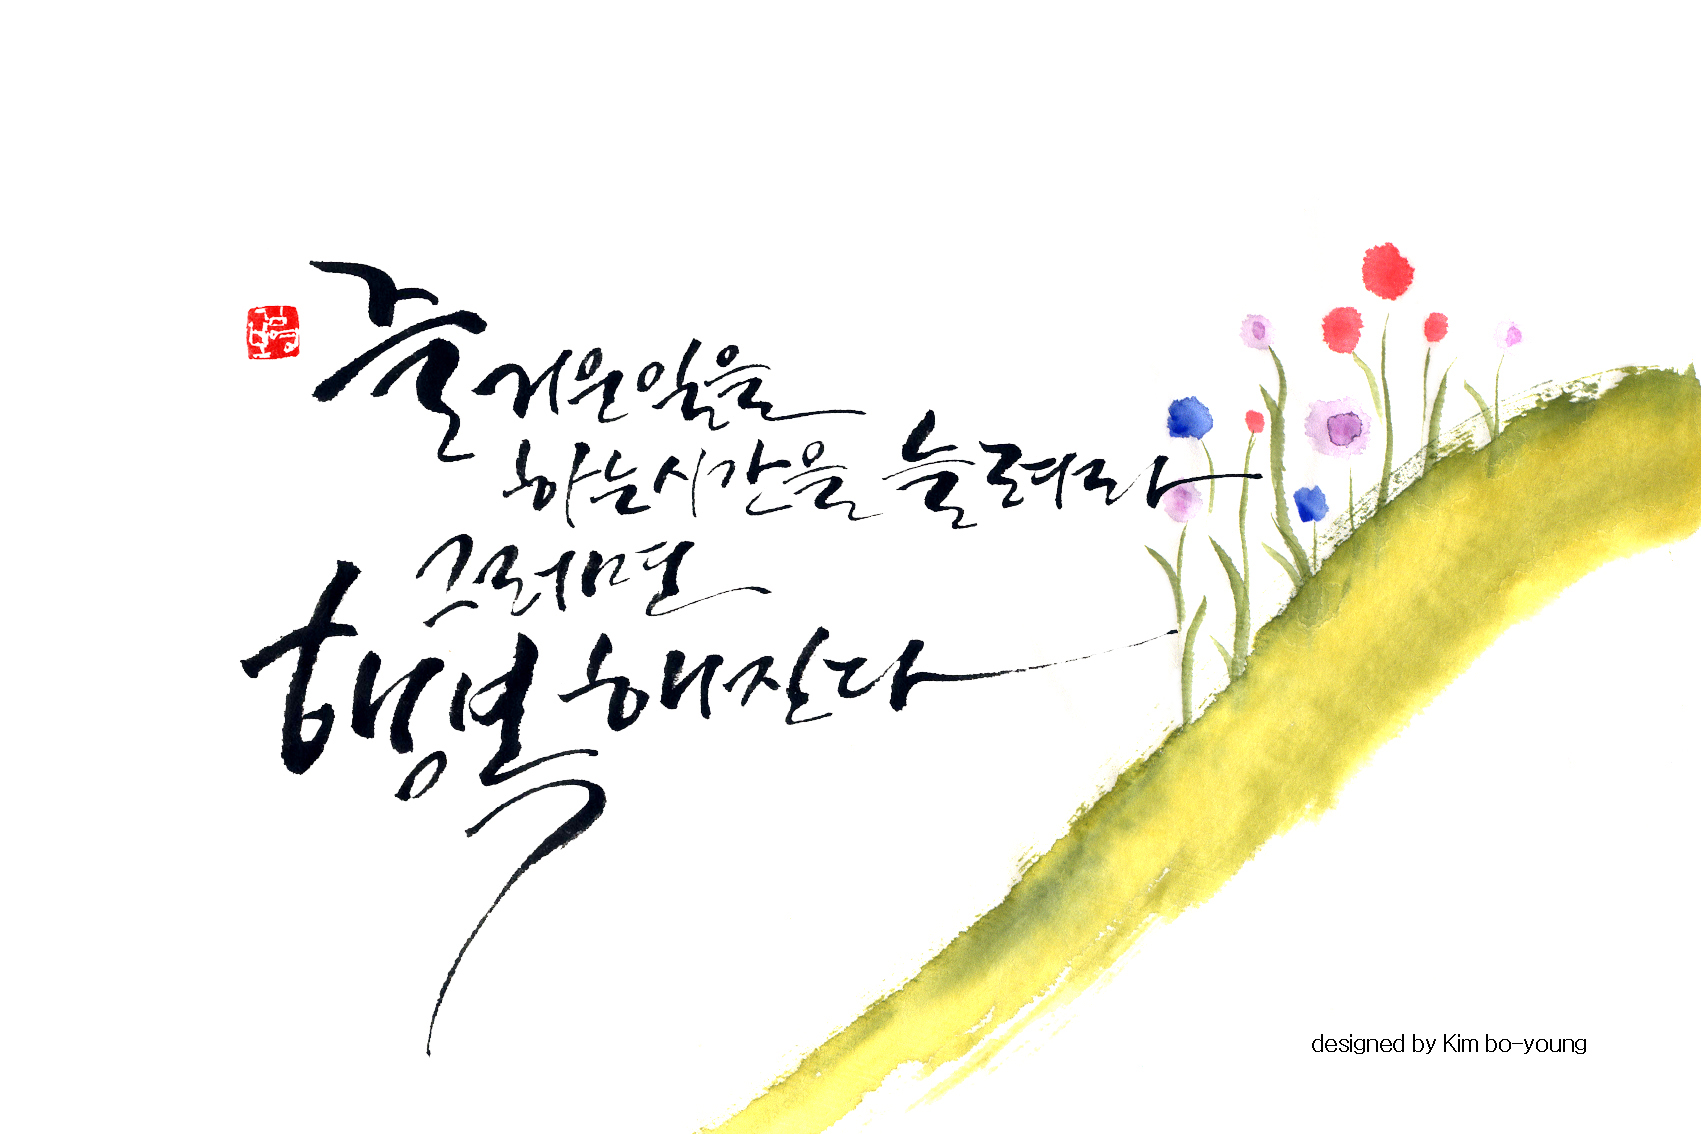 즐거운 일을
하는 시간을 늘려라
그러면
행복해진다
designed by Kim bo-young